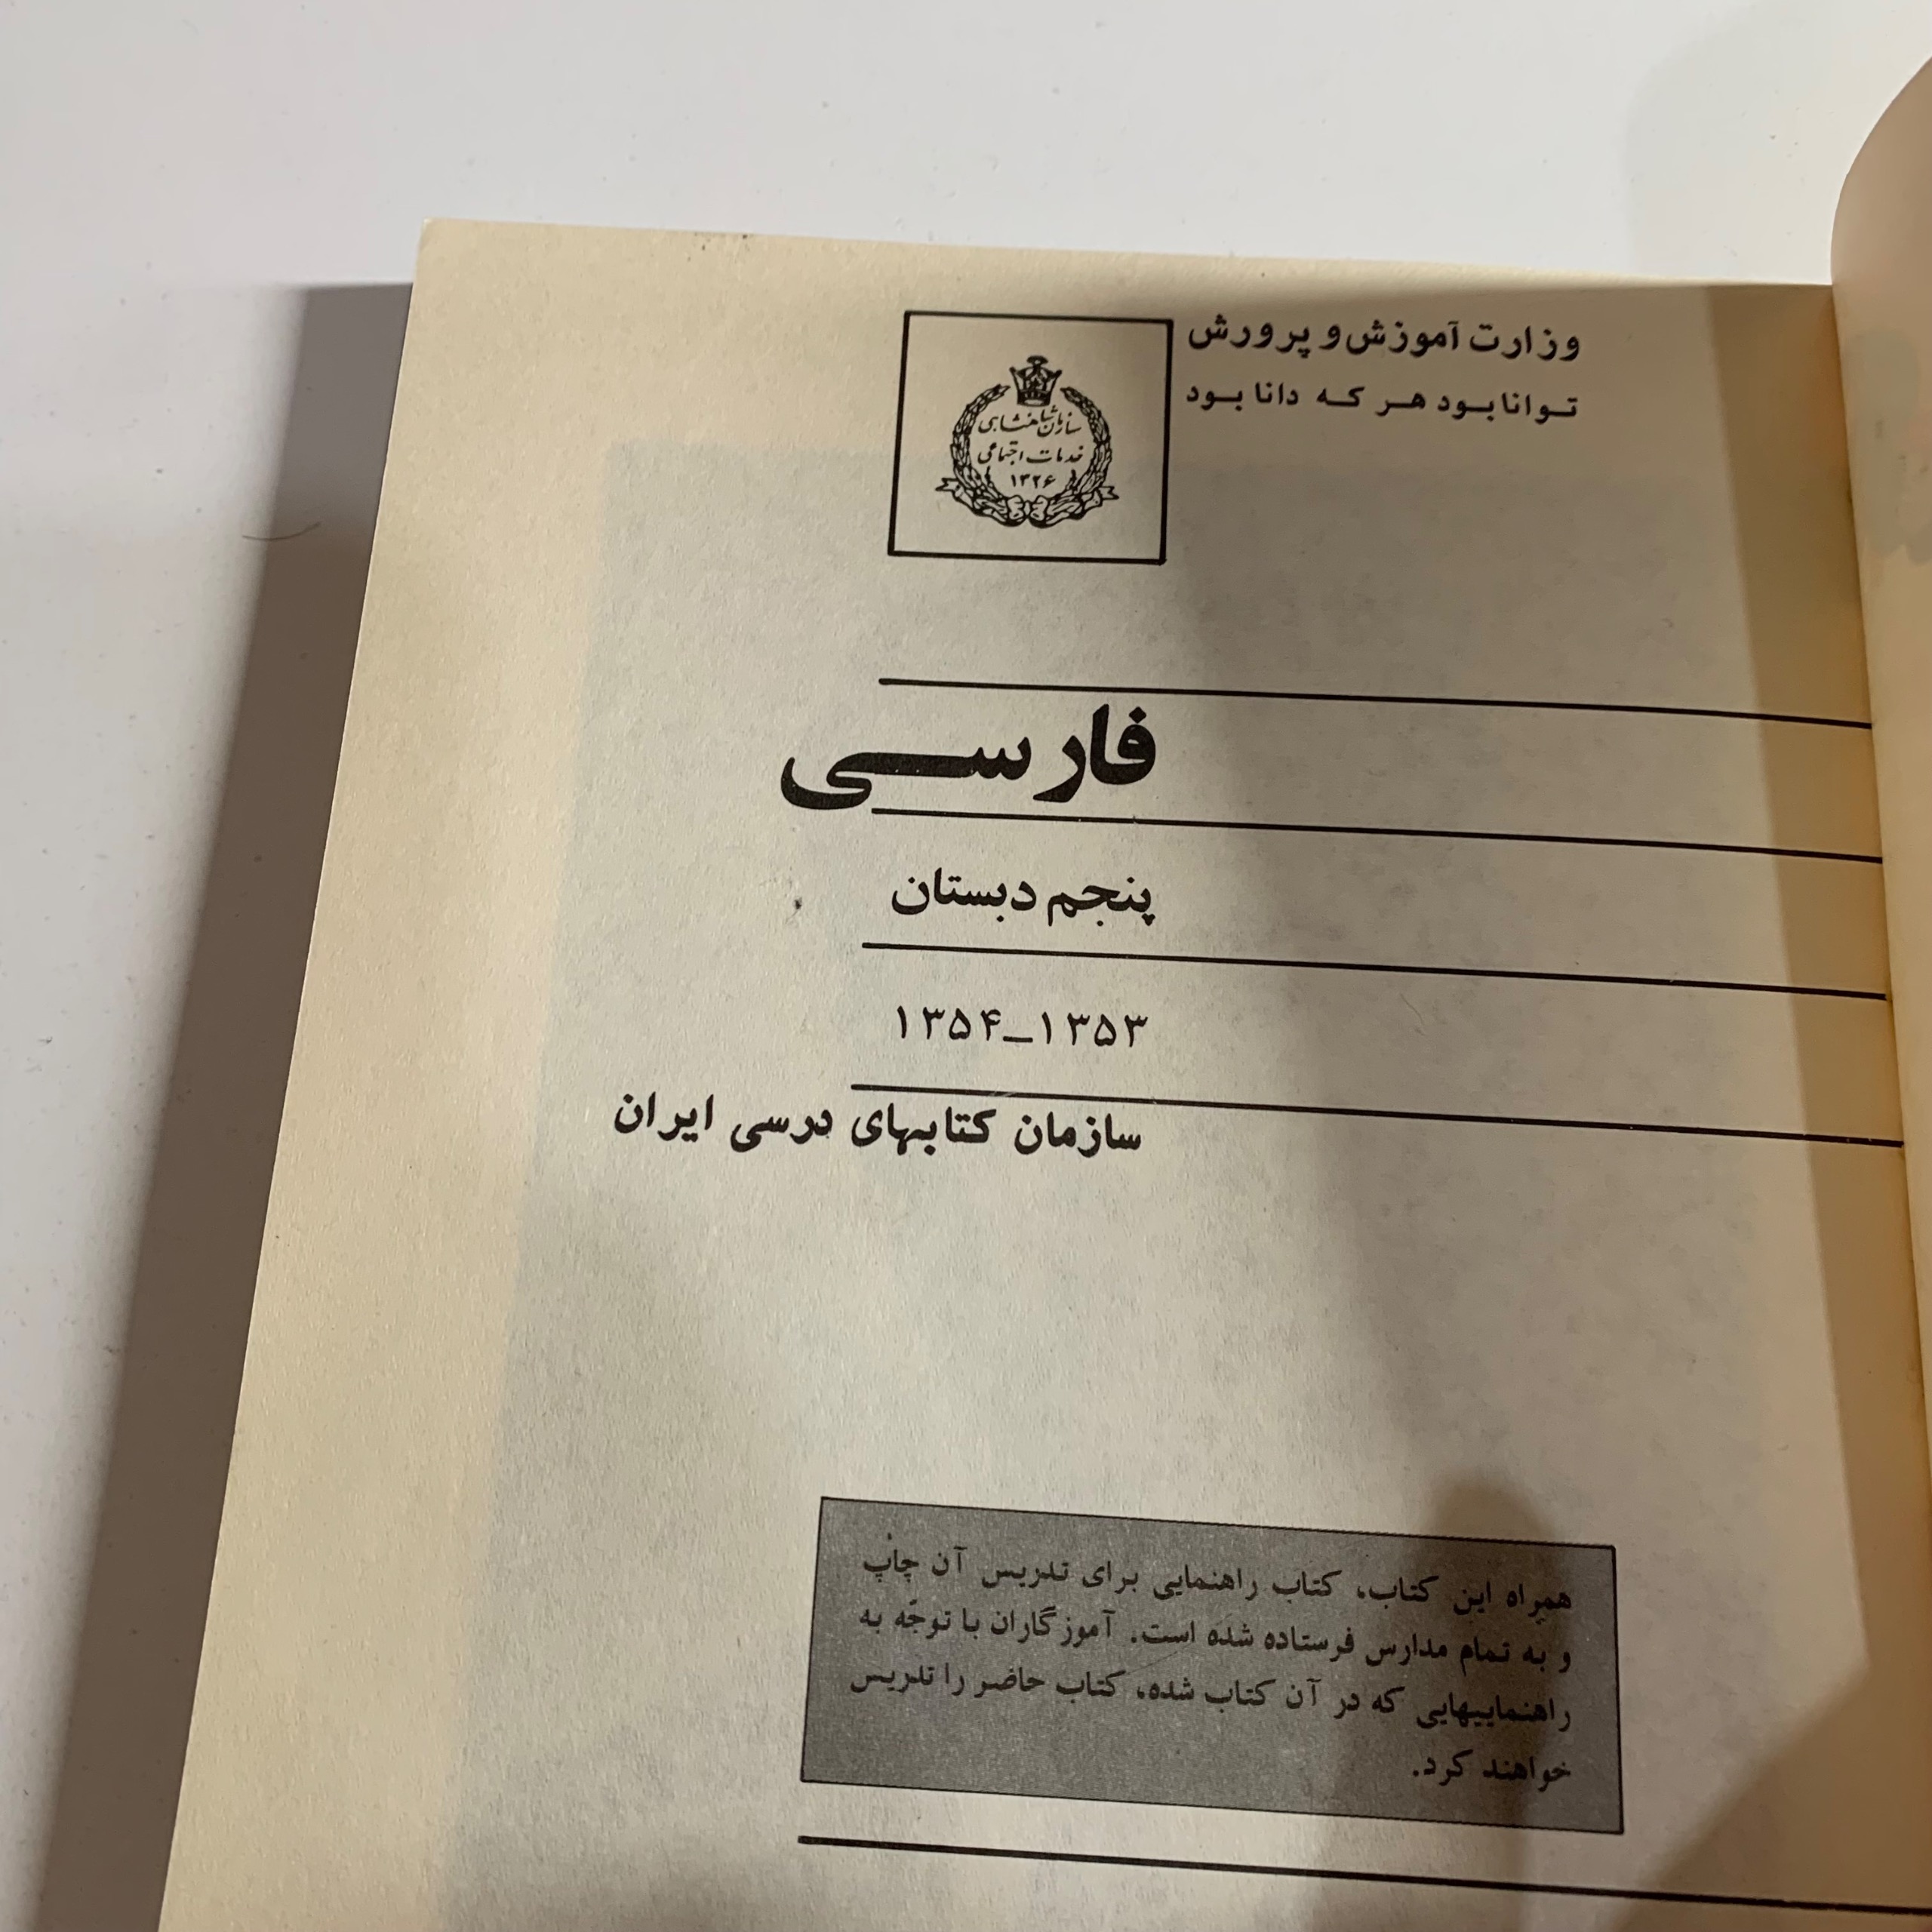 وزارت آموزش و پرورش
توانا بود هر که دانا بود
سازمان شاهنشاهی
خدمات اجتماعی
۱۳۲۶
فارسی
پنجم دبستان
۱۳۵۳_۱۳۵۴
سازمان کتابهای درسی ایران
همراه این کتاب، کتاب راهنمایی برای تدریس آن چاپ
و به تمام مدارس فرستاده شده است. آموزگاران با توجّه به
راهنماییهایی که در آن کتاب شده، کتاب حاضر را تدریس
خواهند کرد.